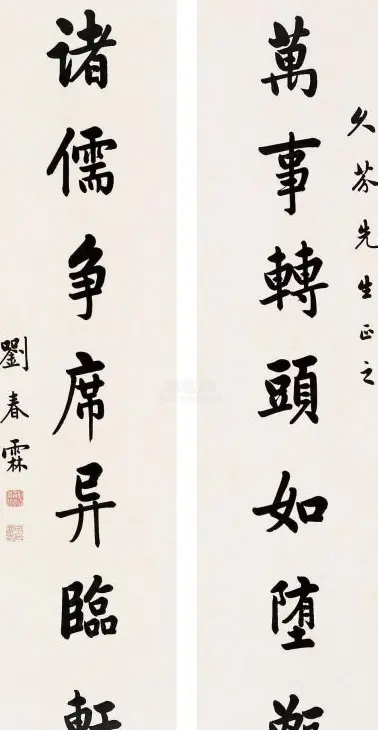 久芬先生正之
萬事轉頭如堕
诸儒争席异臨
劉春霖